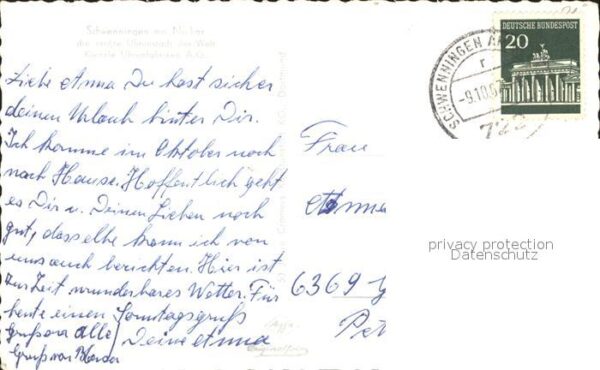 Schwenningen am Neckar
die größte Uhrenstadt der Welt
Liebe Anna Du hast sicher
deinen Urlaub hinter Dir.
Ich komme im Oktober noch
nach Hause. Hoffentlich geht
es Dir u. Deinen Lieben noch
gut, dasselbe kann ich von
uns auch berichten. Hier ist
zur Zeit wunderbares Wetter. Für
heute einen Sonntagsgruß
Gruß an alle
Deine Anna
Gruß von
Frau
Anna
6369
Pet
DEUTSCHE BUNDESPOST
20
SCHWENNINGEN A
-9.10.6
722
privacy protection
Datenschutz